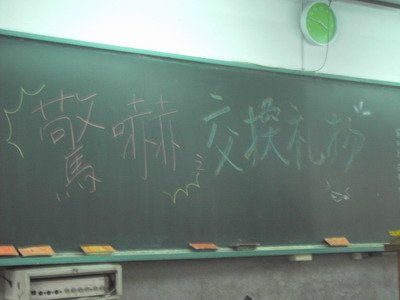 驚嚇交換礼物